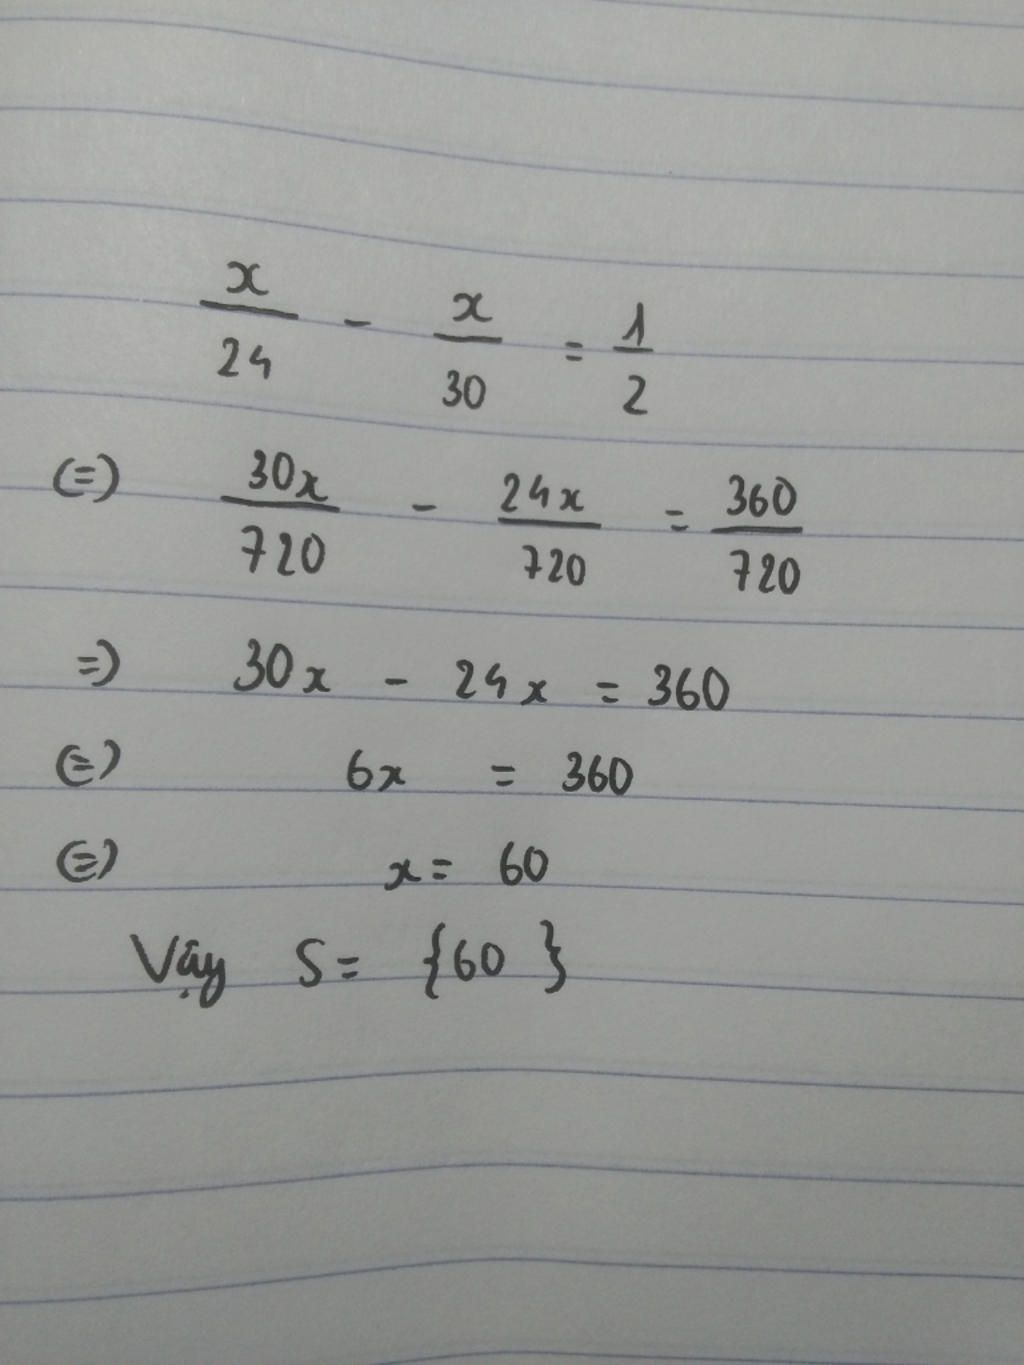 x/24 - x/30 = 1/2
(=) 30x/720 - 24x/720 = 360/720
=) 30x - 24x = 360
(=) 6x = 360
(=) x = 60
Vậy S = {60}